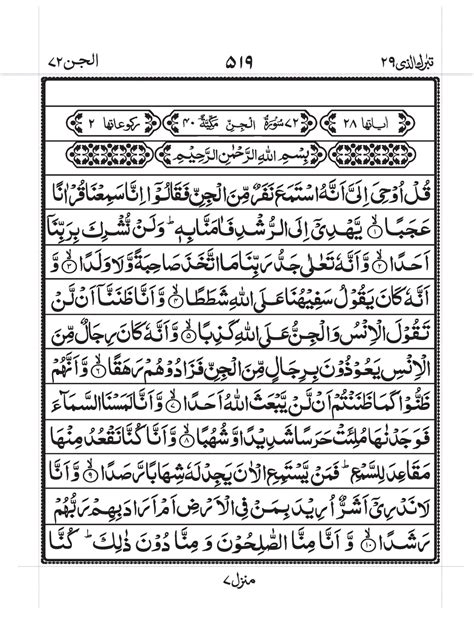 تبٰرك الذی ٢٩ ٥١٩ الجن ٧٢
اٰیاتها ٢٨ ٧٢ سُوْرَةُ الْجِنِّ مَكِّیَّةٌ ٤٠ ركوعاتها ٢
بِسْمِ اللّٰهِ الرَّحْمٰنِ الرَّحِیْمِ
قُلْ اُوْحِیَ اِلَیَّ اَنَّهُ اسْتَمَعَ نَفَرٌ مِّنَ الْجِنِّ فَقَالُوْۤا اِنَّا سَمِعْنَا قُرْاٰنًا
عَجَبًا ۙ‏﴿١﴾ یَّهْدِیْۤ اِلَی الرُّشْدِ فَاٰمَنَّا بِهٖ ؕ وَ لَنْ نُّشْرِكَ بِرَبِّنَاۤ
اَحَدًا ۙ‏﴿٢﴾ وَّ اَنَّهٗ تَعٰلٰی جَدُّ رَبِّنَا مَا اتَّخَذَ صَاحِبَةً وَّ لَا وَلَدًا ۙ‏﴿٣﴾ وَّ
اَنَّهٗ كَانَ یَقُوْلُ سَفِیْهُنَا عَلَی اللّٰهِ شَطَطًا ۙ‏﴿٤﴾ وَّ اَنَّا ظَنَنَّاۤ اَنْ لَّنْ
تَقُوْلَ الْاِنْسُ وَ الْجِنُّ عَلَی اللّٰهِ كَذِبًا ۙ‏﴿٥﴾ وَّ اَنَّهٗ كَانَ رِجَالٌ مِّنَ
الْاِنْسِ یَعُوْذُوْنَ بِرِجَالٍ مِّنَ الْجِنِّ فَزَادُوْهُمْ رَهَقًا ۙ‏﴿٦﴾ وَّ اَنَّهُمْ
ظَنُّوْا كَمَا ظَنَنْتُمْ اَنْ لَّنْ یَّبْعَثَ اللّٰهُ اَحَدًا ۙ‏﴿٧﴾ وَّ اَنَّا لَمَسْنَا السَّمَآءَ
فَوَجَدْنٰهَا مُلِئَتْ حَرَسًا شَدِیْدًا وَّ شُهُبًا ۙ‏﴿٨﴾ وَّ اَنَّا كُنَّا نَقْعُدُ مِنْهَا
مَقَاعِدَ لِلسَّمْعِ ؕ فَمَنْ یَّسْتَمِعِ الْاٰنَ یَجِدْ لَهٗ شِهَابًا رَّصَدًا ۙ‏﴿٩﴾ وَّ اَنَّا
لَا نَدْرِیْۤ اَشَرٌّ اُرِیْدَ بِمَنْ فِی الْاَرْضِ اَمْ اَرَادَ بِهِمْ رَبُّهُمْ
رَشَدًا ۙ‏﴿١٠﴾ وَّ اَنَّا مِنَّا الصّٰلِحُوْنَ وَ مِنَّا دُوْنَ ذٰلِكَ ؕ كُنَّا
منزل ٧